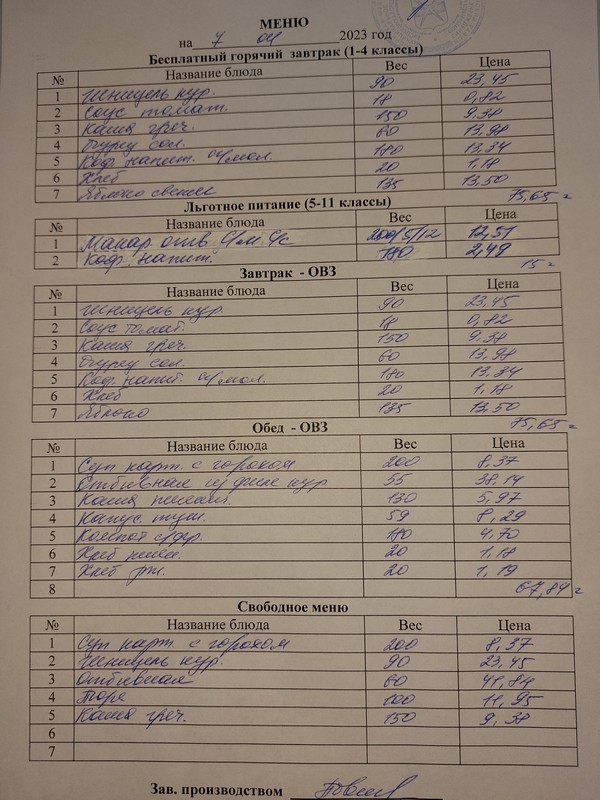 МЕНЮ
на 7 04 2023 год
Бесплатный горячий завтрак (1-4 классы)
№ Название блюда Вес Цена
1 Шницель кур. 90 23,45
2 Соус томат. 18 0,82
3 Каша греч. 150 9.38
4 Огурец сол. 60 13,98
5 Коф. напит. с/мол. 180 13,34
6 Хлеб 20 1,18
7 Яблоко свежее 135 13,50
75,65
Льготное питание (5-11 классы)
№ Название блюда Вес Цена
1 Макар. отв. с/м. с/с 200/5/12 12,51
2 Коф. напит. 180 2,49
15
Завтрак - ОВЗ
№ Название блюда Вес Цена
1 Шницель кур. 90 23.45
2 Соус томат. 18 0,82
3 Каша греч. 150 9.38
4 Огурец сол. 60 13,98
5 Коф. напит. с/мол. 180 13.34
6 Хлеб 20 1,18
7 Яблоко 135 13,50
75,65
Обед - ОВЗ
№ Название блюда Вес Цена
1 Суп карт. с горохом 200 8,37
2 Отбивная из филе кур 55 38,14
3 Каша 130 5,97
4 Капус. туш. 59 8,29
5 Компот с/фр. 180 4,70
6 Хлеб пшен. 20 1,18
7 Хлеб рж. 20 1,19
8 67,84
Свободное меню
№ Название блюда Вес Цена
1 Суп карт. с горохом 200 8,37
2 Шницель кур. 90 23,45
3 Отбивная 60 41,84
4 Пюре 100 11,95
5 Каша греч. 150 9.38
6
7
Зав. производством